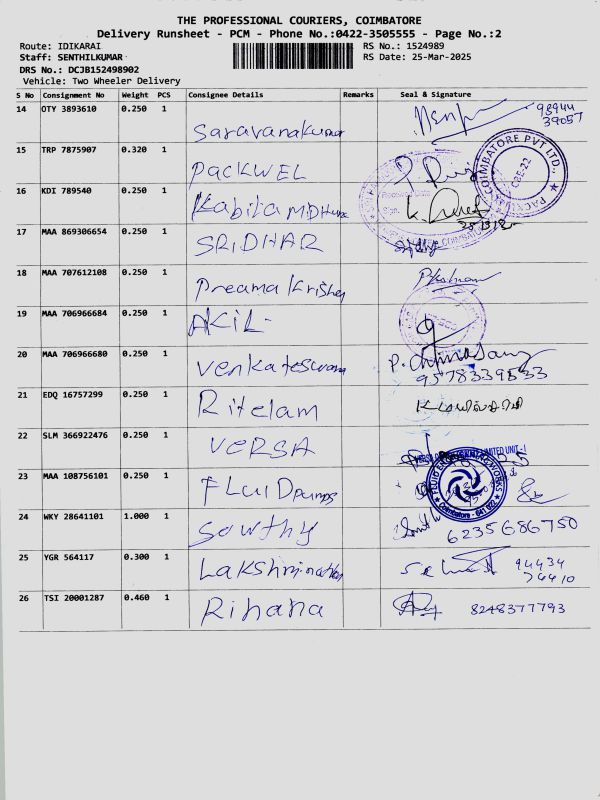 THE PROFESSIONAL COURIERS, COIMBATORE
Delivery Runsheet - PCM - Phone No.:0422-3505555 - Page No.:2
Route: IDIKARAI RS No.: 1524989
Staff: SENTHILKUMAR RS Date: 25-Mar-2025
DRS No.: DCJB152498902
Vehicle: Two Wheeler Delivery
S No Consignment No Weight PCS Consignee Details Remarks Seal & Signature
14 OTY 3893610 0.250 1 Saravanakumar 98944
39057
15 TRP 7875907 0.320 1 PACKWEL
COIMBATORE PVT LTD.,
CBE-22
16 KDI 789540 0.250 1 Kabila
17 MAA 869306654 0.250 1 SRIDHAR
18 MAA 707612108 0.250 1 Preama Krishna
19 MAA 706966684 0.250 1 AKIL
20 MAA 706966680 0.250 1 Venkateswara
9578339533
21 EDQ 16757299 0.250 1 Ritelam
22 SLM 366922476 0.250 1 VERSA
UNITED UNIT - I
23 MAA 108756101 0.250 1 FLUID pumps
Coimbatore
24 WKY 28641101 1.000 1 Sowthy 6235686750
25 YGR 564117 0.300 1 Lakshminathan 94434
74410
26 TSI 20001287 0.460 1 Rihana 8248377793